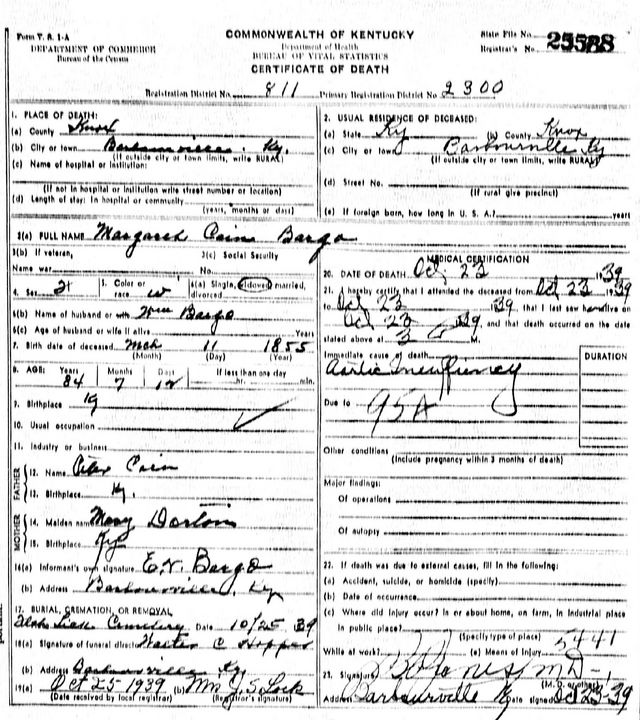 Form V. S. 1-A
DEPARTMENT OF COMMERCE
Bureau of the Census
COMMONWEALTH OF KENTUCKY
Department of Health
BUREAU OF VITAL STATISTICS
CERTIFICATE OF DEATH
State File No. 25588
Registrar's No.
Registration District No. 811 Primary Registration District No. 2300
1. PLACE OF DEATH:
(a) County Knox
(b) City or town Barbourville, Ky.
(If outside city or town limits, write RURAL)
(c) Name of hospital or institution:
(If not in hospital or institution write street number or location)
(d) Length of stay: In hospital or community
(years, months or days)
2. USUAL RESIDENCE OF DECEASED:
(a) State Ky (b) County Knox
(c) City or town Barbourville Ky
(If outside city or town limits, write RURAL)
(d) Street No.
(If rural give precinct)
(e) If foreign born, how long in U. S. A.? years
3(a) FULL NAME Margaret Cain Bargo
3(b) If veteran, 3(c) Social Security
Name war No.
4. Sex F 5. Color or race W 6(a) Single, widowed, married, divorced
6(b) Name of husband or wife Wm Bargo
6(c) Age of husband or wife if alive Years
7. Birth date of deceased Mch 11 1855
(Month) (Day) (Year)
8. AGE: Years Months Days If less than one day
84 7 12 hr. min.
9. Birthplace Ky
10. Usual occupation
11. Industry or business
FATHER
12. Name Cain
13. Birthplace Ky.
MOTHER
14. Maiden name Mary
15. Birthplace Ky
16(a) Informant's own signature E.V. Bargo
(b) Address Barbourville, Ky
17. BURIAL, CREMATION, OR REMOVAL
Cemetery Date 10/25 39
18(a) Signature of funeral director Walter C Hopper
(b) Address Barbourville Ky
19(a) Oct 25 1939 (b) Mrs J. S. Lock
(Date received by local registrar) (Registrar's signature)
MEDICAL CERTIFICATION
20. DATE OF DEATH Oct 23 1939
21. I hereby certify that I attended the deceased from Oct 23 1939
to Oct 23 39, that I last saw h alive on
Oct 23 39, and that death occurred on the date
stated above at 3 M.
Immediate cause of death DURATION
Due to 95A
Other conditions
(Include pregnancy within 3 months of death)
Major findings:
Of operations
Of autopsy
22. If death was due to external causes, fill in the following:
(a) Accident, suicide, or homicide (specify)
(b) Date of occurrence
(c) Where did injury occur? in or about home, on farm, in industrial place
in public place?
(Specify type of place) 5441
While at work? (e) Means of Injury
23. Signature Jones M D
(M. D. or other)
Address Barbourville K Date signed Oct 23-39